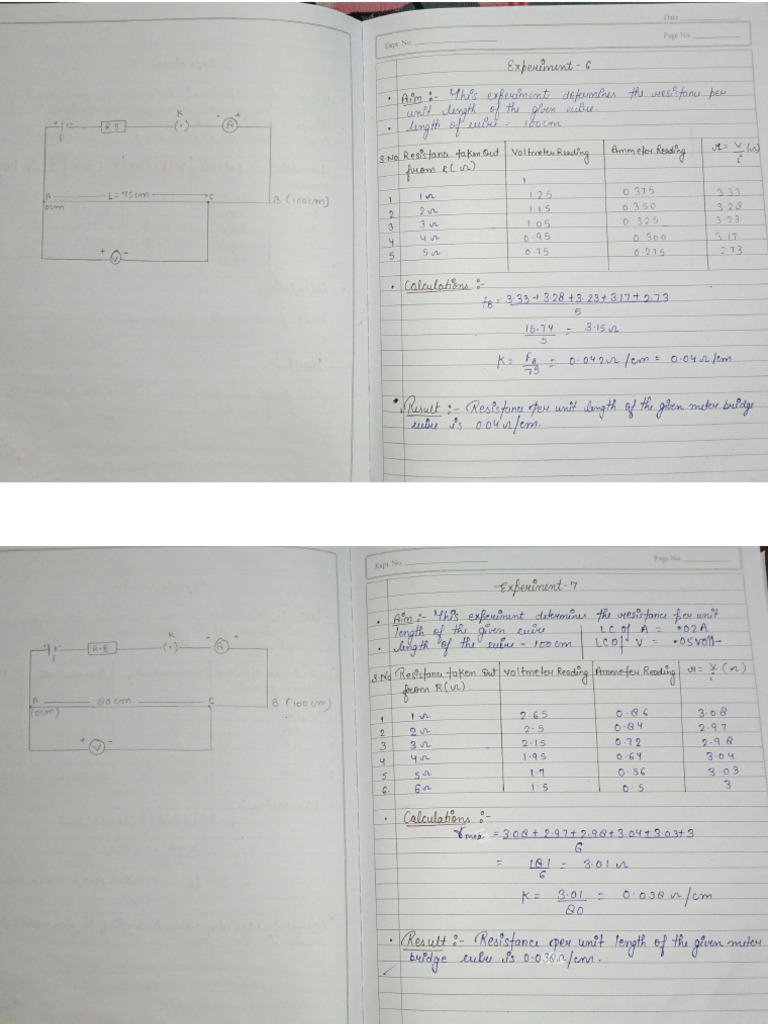 K
- A +
R.B
A
0cm
L = 75cm
C
B (100cm)
+ V -
Date
Expt. No.
Page No.
Experiment - 6
• Aim :- This experiment determines the resistance per
unit length of the given wire.
• length of wire - 100cm
S.No Resistance taken Out from R(Ω) Voltmeter Reading Ammeter Reading r = V/i (Ω)
1 1Ω 1.25 0.375 3.33
2 2Ω 1.15 0.350 3.28
3 3Ω 1.05 0.325 3.23
4 4Ω 0.95 0.300 3.17
5 5Ω 0.75 0.275 2.73
• Calculations :-
= 3.33 + 3.28 + 3.23 + 3.17 + 2.73
5
15.74/5 = 3.15Ω
K = /75 = 0.042Ω/cm = 0.04Ω/cm
• Result :- Resistance per unit length of the given meter bridge
wire is 0.04Ω/cm.
K
- A +
R.B
A
(0cm)
80cm
C
B (100cm)
+ V -
Expt. No.
Page No.
Experiment - 7
• Aim :- This experiment determines the resistance per unit
length of the given wire LC of A = .02A
• length of the wire - 100cm LC of V = .05volt
S.No Resistance taken Out from R(Ω) Voltmeter Reading Ammeter Reading r = V/i (Ω)
1 1Ω 2.65 0.86 3.08
2 2Ω 2.5 0.84 2.97
3 3Ω 2.15 0.72 2.98
4 4Ω 1.95 0.64 3.04
5 5Ω 1.7 0.56 3.03
6 6Ω 1.5 0.5 3
• Calculations :-
= 3.08 + 2.97 + 2.98 + 3.04 + 3.03 + 3
6
= 181/6 = 3.01Ω
K = 3.01/80 = 0.038Ω/cm
• Result :- Resistance per unit length of the given meter
bridge wire is 0.038Ω/cm.